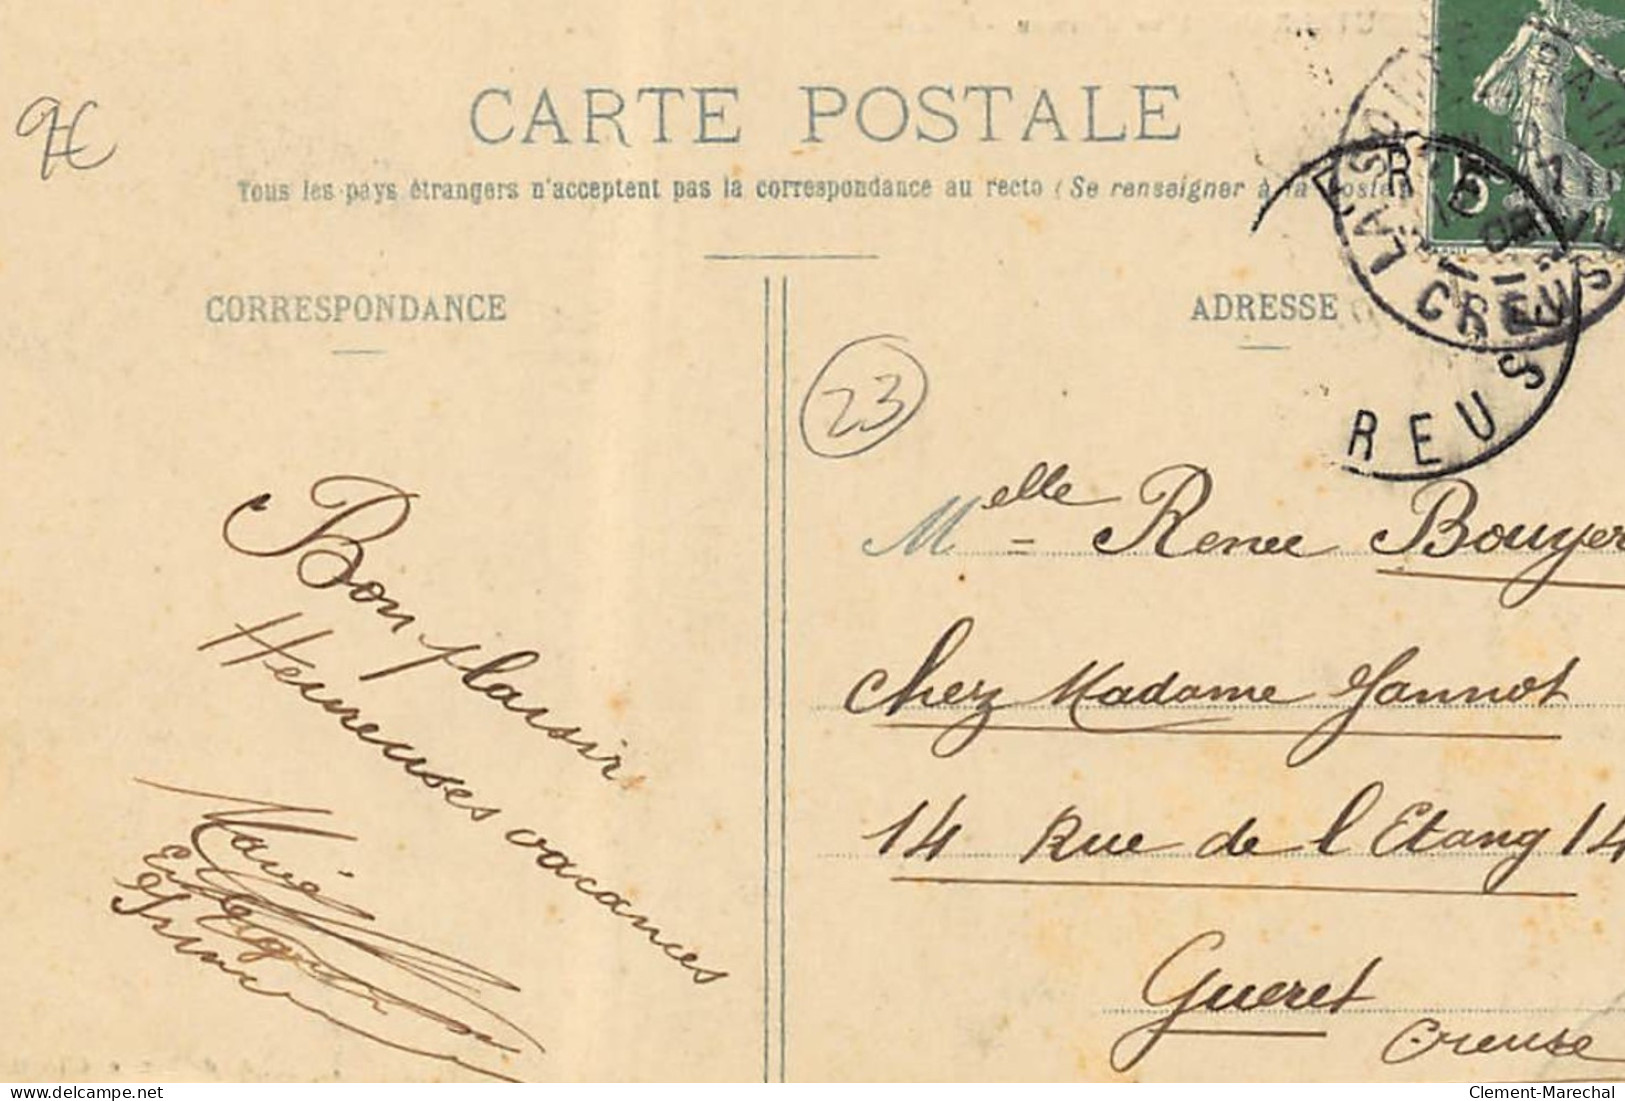 CARTE POSTALE
Tous les pays étrangers n'acceptent pas la correspondance au recto (Se renseigner à la Poste
CORRESPONDANCE
ADRESSE
23
LA SOUTERRAINE
CREUSE
REUS
5
Bon plaisir
Heureuses vacances
Melle Renee Bouyer
chez Madame Jannot
14 Rue de l Etang 14
Gueret
Creuse
delcampe.net
Clement-Marechal